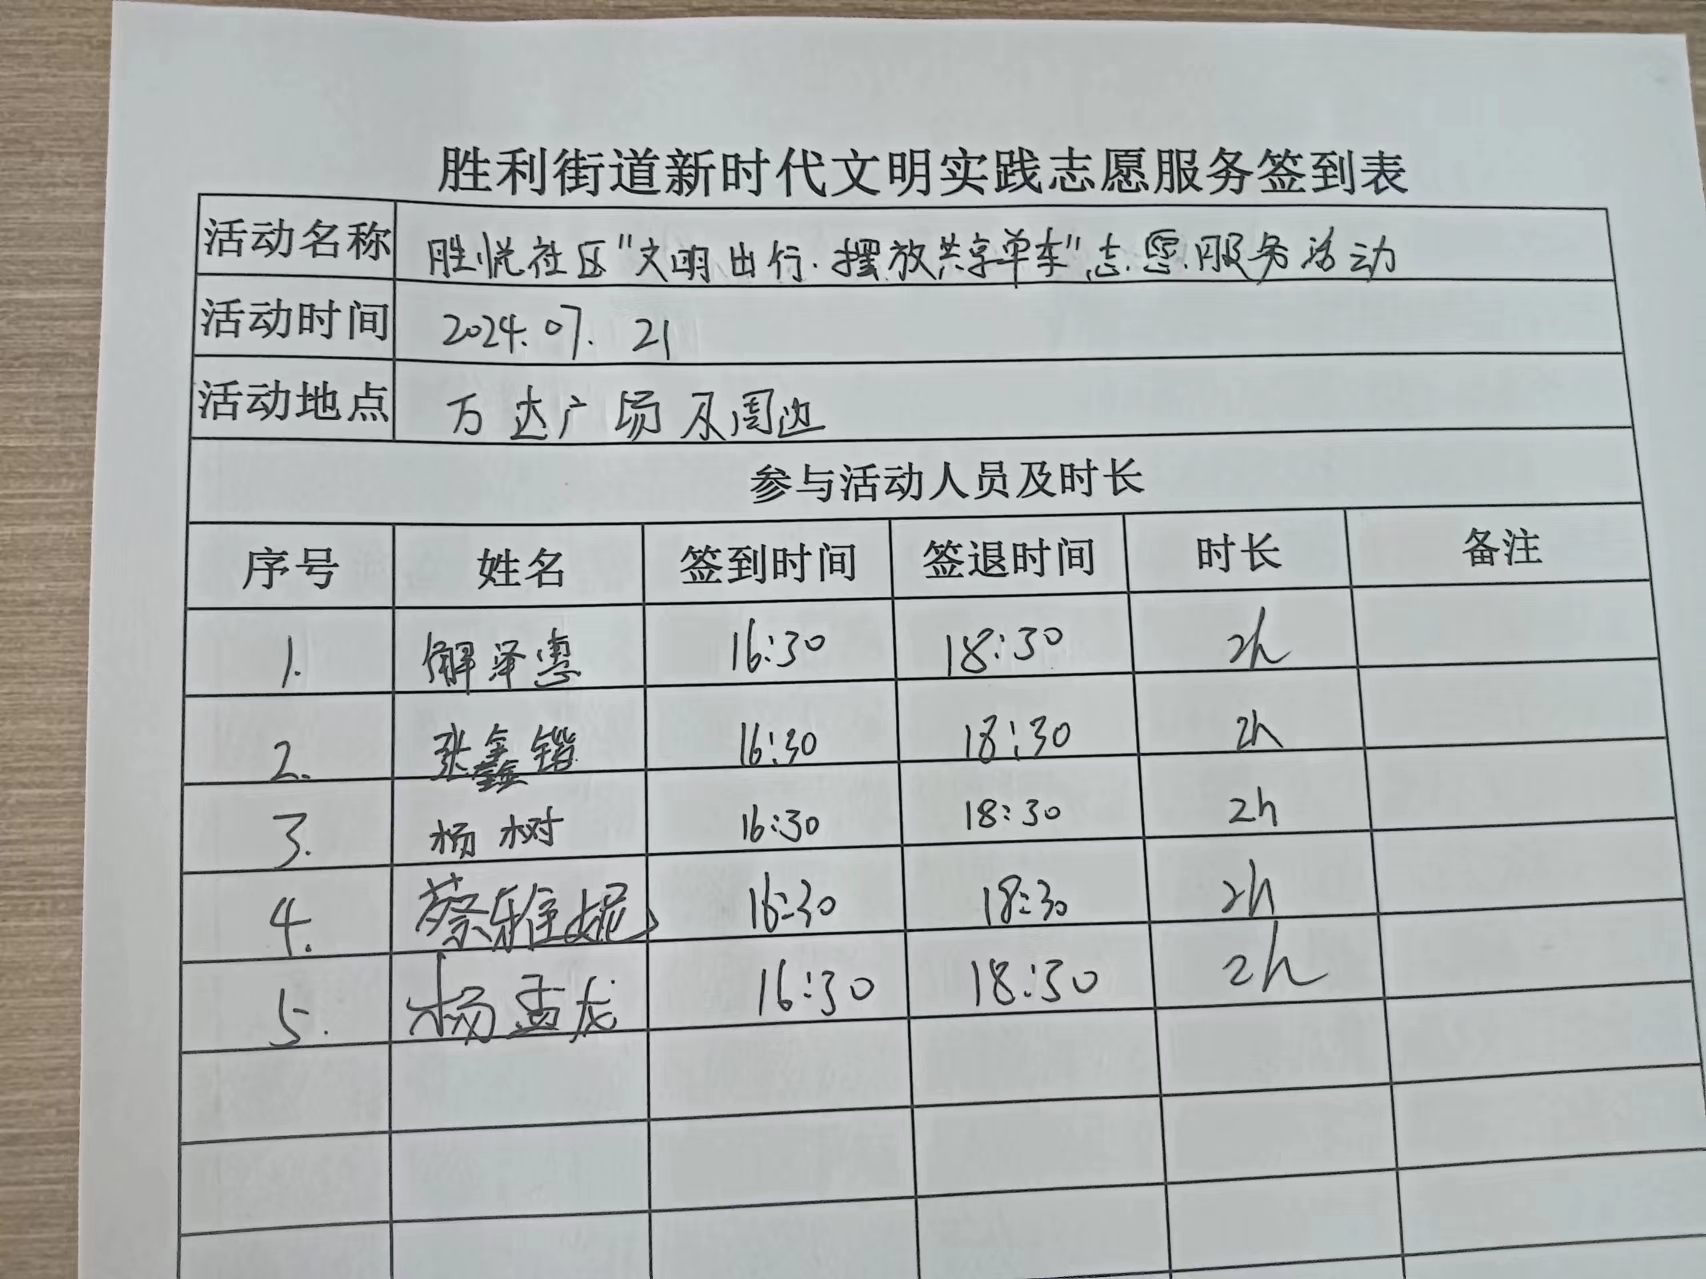 胜利街道新时代文明实践志愿服务签到表
活动名称 胜悦社区"文明出行.摆放共享单车"志愿服务活动
活动时间 2024.07.21
活动地点 万达广场及周边
参与活动人员及时长
序号 姓名 签到时间 签退时间 时长 备注
1. 解泽惠 16:30 18:30 2h
2. 张鑫锴 16:30 18:30 2h
3. 杨树 16:30 18:30 2h
4. 蔡雅妮 16:30 18:30 2h
5. 杨孟龙 16:30 18:30 2h